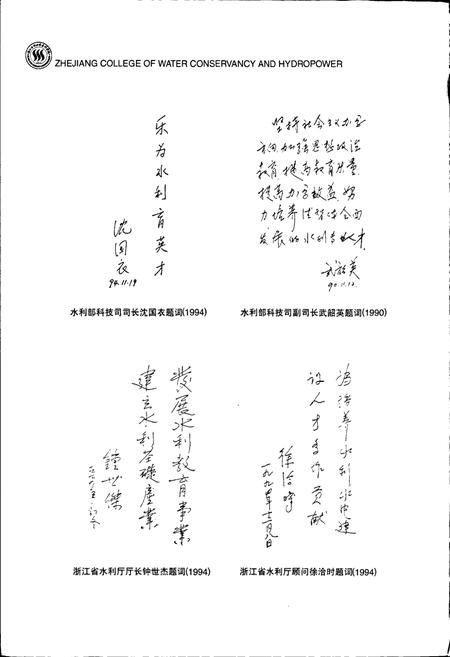 ZHEJIANG COLLEGE OF WATER CONSERVANCY AND HYDROPOWER
乐为水利育英才
沈国衣
94.11.19
水利部科技司司长沈国衣题词(1994)
坚持社会主义办学
方向,加强思想政治
教育,提高教育质量,
提高办学效益,努
力培养德智体全面
发展的水利专业人才
武韶英
90.11.12.
水利部科技司副司长武韶英题词(1990)
发展水利教育事业
建立水利基礎產業
鐘世傑
浙江省水利厅厅长钟世杰题词(1994)
为培养水利水电建
设人才多作贡献
徐洽时
一九九四年十二月八日
浙江省水利厅顾问徐洽时题词(1994)